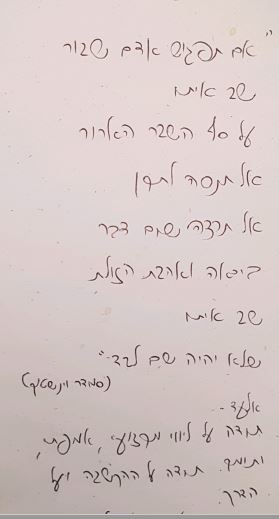 "אם תפגוש אדם שבור
שב איתו
על סף השבר הארור
אל תנסה לתקן
אל תרצה שום דבר
ביראה ואהבת הזולת
שב איתו
שלא יהיה שם לבד."
(סמדר וינשטוק)
אלעד -
תודה על ליווי מקצועי, אמפתי,
ותומך. תודה על ההקשבה ועל
הדרך.